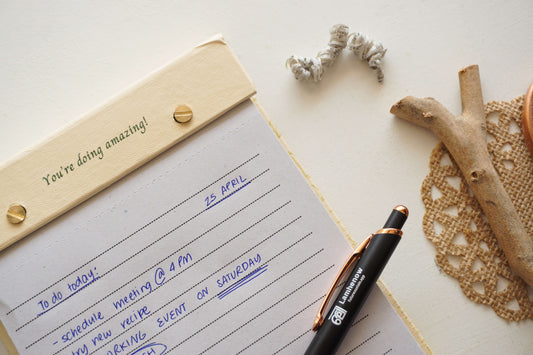 You're doing amazing!
25 APRIL
To do today:
- schedule meeting @ 4 PM
try new recipe
EVENT ON SATURDAY
Lanhenow